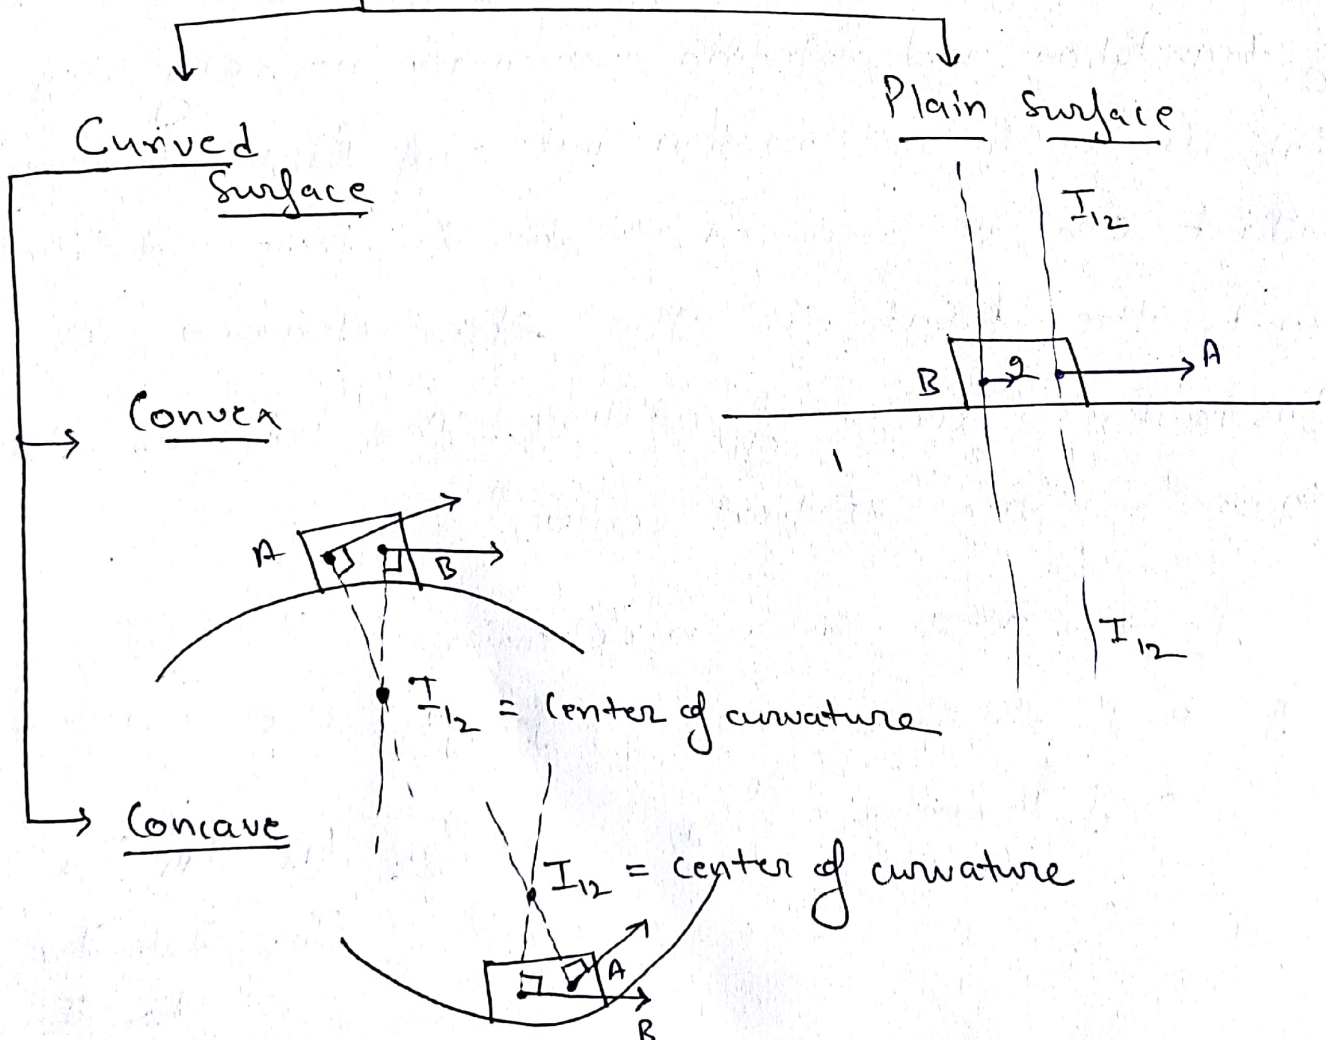 Plain surface
Curved
surface
I12
B 2 A
1
Convex
A B
I12
I12 = Center of curvature
Concave
I12 = center of curvature
A
B